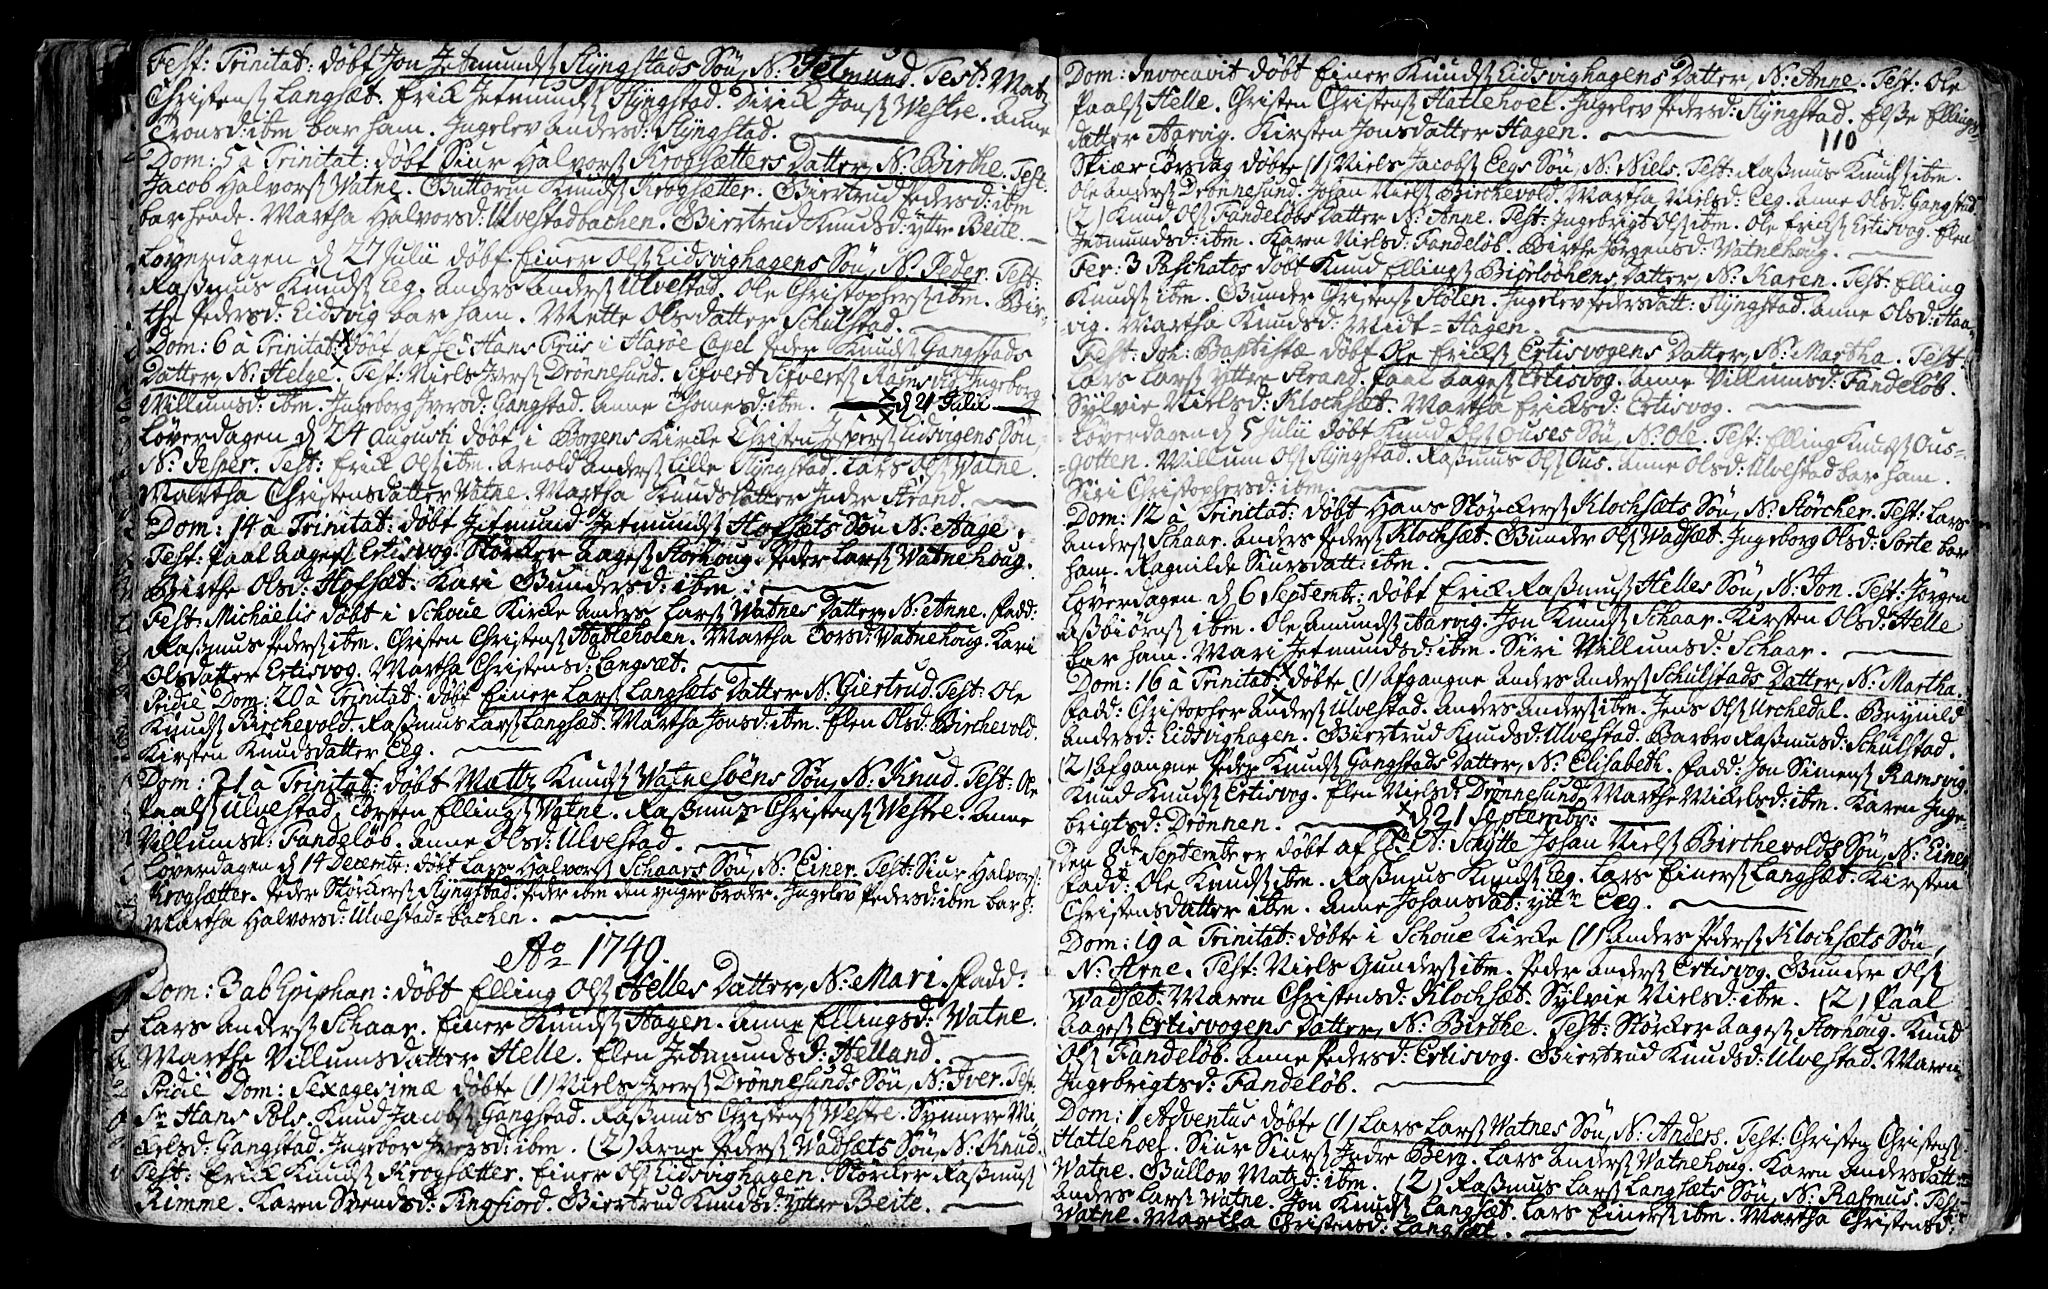 Fest: Trinitat: döbt Jon Jetmunds Slyngstads Sön, N: Jetmund. Test: Matz
Christens Langsæt. Erick Jetmunds Slyngstad. Dirick Jons Westre. Anne
Tronsd: ibm bar ham. Ingelev Andersd: Slyngstad.
Dom: 5 à Trinitat: döbt Siur Halvors Krogsætters Datter, N: Birthe. Test:
Jacob Halvors Watne. Guttorm Knuds Krogsætter. Giertrud Peders d: ibm
bar hende. Martha Halvorsd: Ulvestadbachen. Giertrud Knudsd: yttre Beite.
Löverdagen d 27 Julii döbt Einer Ols Eidsvighagens Sön, N: Peder. Test:
Rasmus Knuds Eeg. Anders Anders Ulvestad. Ole Christophers ibm. Bir-
the Pedersd: Eidsvig bar ham. Mette Olsdatter Schulstad.
Dom: 6 à Trinitat: döbt af Hr Hans Crüs i Haröe Capel Peder Knuds Gangstads
Datter, N: Helge. Test: Niels Ivers Drönnesund. Sifvert Sifverts Ramsvig. Ingeborg
Willumsd: ibm. Ingeborg Iversd: Gangstad. Anne Thomesd: ibm. d 21 Julii
Löverdagen d 24 Augusti döbt i Borgens Kirke Christen Jespers Eidsvigens Sön,
N: Jesper. Test: Erick Ols ibm. Arnold Anders Lille Slyngstad. Lars Ols Watne.
Martha Christensdatter Watne. Martha Knudsdatter Indre Strand.
Dom: 14 à Trinitat: döbt Jetmund Jetmunds Hofsæts Sön N: Aage.
Test: Paal Aages Ertisvog. Störker Aages Storhoug. Peder Lars Watnehoug.
Birthe Olsd: Hofsæt. Kari Gundersd: ibm.
Fest: Michäelis döbt i Schoue Kirke Anders Lars Watnes Datter, N: Anne. Fadd:
Rasmus Peders ibm. Christen Christens Hatleholen. Martha Corsd: Watnehoug. Kari
Olsdatter Ertisvog. Martha Christensd: Langsæt.
Pridie Dom: 20 à Trinitat: döbt Einer Lars Langsæts Datter N: Giertrud. Test: Ole
Knuds Birchevold. Rasmus Lars Langsæt. Martha Jonsd: ibm. Elen Olsd: Birchevold.
Kirsten Knudsdatter Eeg.
Dom: 21 à Trinitat: döbt Mattz Knuds Watnesöens Sön, N: Knud. Test: Ole
Paals Ulvestad. Torsten Ellings Watne. Rasmus Christens Westre. Anne
Villumsd: Fandelöb. Anne Olsd: Ulvestad.
Löverdagen d 14 Decembr: döbt Lars Halvors Schaars Sön, N: Einer. Test: Siur Halvors
Krogsætter. Peder Störkers Slyngstad. Peder ibm den yngre broder. Ingelev Pedersd: ibm bar h:
Martha Halvorsd: Ulvestad-bachen.
Ao 1749.
Dom: 3 ab Epiphan: döbt Elling Ols Helles Datter, N: Mari. Fadd:
Lars Anders Schaar. Einer Knuds Hagen. Anne Ellingsd: Watne.
Marthe Villumsdatter Helle. Elen Jetmundsd: Helland.
Pridie Dom: Sexagesimæ döbte (1) Niels Ivers Drönnesunds Sön, N: Iver. Test:
Sr Hans Pols. Knud Jacobs Gangstad. Rasmus Christens Westre. Synnere Mi-
kelsd: Gangstad. Ingebor Iversd: ibm. (2) Arne Peders Vadsæts Sön, N: Knud.
Test: Erick Knuds Krogsætter. Einer Ols Eidsvighagen. Störker Rasmus
Rimme. Karen Svendsd: Tingfiord. Giertrud Knudsd: Yttre Beite.
Dom: Invocavit döbt Einer Knuds Eidsvighagens Datter, N: Anne. Test: Ole
Paals Helle. Christen Christens Hatlehoel. Ingelev Pedersd: Slyngstad. Else Ellings-
datter Aarvig. Kirsten Jonsdatter Hagen.
110
Skiær Torsdag döbte (1) Niels Jacobs Eegs Sön, N: Niels. Test: Rasmus Knuds ibm.
Ole Anders Drönnesund. Johan Niels Birchevold. Martha Nielsd: Eeg. Anne Olsd: Gangstad.
(2) Knud Ols Fandelöbs Datter N: Anne. Test: Ingebrigt Ols ibm. Ole Ericks Ertisvog. Elen
Jetmundsd: ibm. Karen Nielsd: Fandelöb. Birthe Jörgensd: Watnehoug.
Fer: 3 Paschatos döbt Knud Ellings Biørlochens Datter, N: Karen. Test: Elling
Knuds ibm. Gunder Christens Stölen. Ingelev Pedersdatt: Slyngstad. Anne Olsd: Haa-
vig. Martha Knudsd: Midt-Hagen.
Fest: Joh: Baptistæ döbt Ole Ericks Ertisvogens Datter, N: Martha. Test:
Lars Lars Yttre Strand. Paal Aages Ertisvog. Anne Villumsd: Fandelöb.
Sylvie Nielsd: Klochsæt. Martha Ericksd: Ertisvog.
Löverdagen d 5 Julii döbt Knud Ols Ouses Sön, N: Ole. Test: Elling Knuds Ous-
gotten. Willum Ols Slyngstad. Rasmus Ols Ous. Anne Olsd: Ulvestad bar ham.
Siri Christophersd: ibm.
Dom: 12 à Trinitat: döbt Hans Störkers Klochsæts Sön, N: Störcher. Test: Lars
Anders Schaar. Anders Peders Klochsæt. Gunder Ols Wadsæt. Ingeborg Olsd: Sorte bar
ham. Ragnilde Siursdatt: ibm.
Löverdagen d 6 Septembr: döbt Erick Rasmus Helles Sön, N: Jon. Test: Jörgen
Asbiörns ibm. Ole Amunds Aarvig. Jon Knuds Schaar. Kirsten Olsd: Helle
bar ham. Mari Jetmundsd: ibm. Siri Villumsd: Schaar.
Dom: 16 à Trinitat: döbte (1) Afgangne Anders Anders Schulstads Datter, N: Martha.
Fadd: Christopher Anders Ulvestad. Anders Anders ibm. Jens Ols Urchedal. Brynild
Andersd: Eidsvighagen. Giertrud Knudsd: Ulvestad. Barbro Rasmusd: Schulstad.
(2) Afgangne Peder Knuds Gangstads Datter, N: Elisabeth. Fadd: Jon Simens Ramsvig.
Knud Knuds Ertisvog. Elen Nielsd: Drönnesund. Marthe Mickelsd: ibm. Karen Inge-
brigtsd: Drönnen. d 21 Septembr:
den 8de September döbt af Hr N: Schytte Johan Niels Birchevolds Sön, N: Einer.
Fadd: Ole Knuds ibm. Rasmus Knuds Eeg. Lars Einers Langsæt. Kirsten
Christensdatter ibm. Anne Johansdat: ytt Eeg.
Dom: 19 à Trinitat: döbte i Schoue Kirke (1) Anders Peders Klochsæts Sön,
N: Arne. Test: Niels Gunders ibm. Peder Anders Ertisvog. Gunder Ols
Vadsæt. Maren Christensd: Klochsæt. Sylvie Nielsd: ibm. (2) Paal
Aages Ertisvogens Datter, N: Birthe. Test: Störker Aages Storhoug. Knud
Ols Fandelöb. Anne Pedersd: Ertisvog. Giertrud Knudsd: Ulvestad. Maren
Ingebrigtsd: Fandelöb.
Dom: 1 Adventus döbte (1) Lars Lars Watnes Sön, N: Anders. Test: Christen Christens
Hatlehoel. Siur Siurs Indre Berg. Lars Anders Watnehoug. Karen Andersdatt:
Watne. Gullov Matzd: ibm. (2) Rasmus Lars Langsæts Sön, N: Rasmus. Test:
Anders Lars Watne. Jon Knuds Langsæt. Lars Einers ibm. Martha Christensd:
Watne. Martha Christensd: Langsæt.